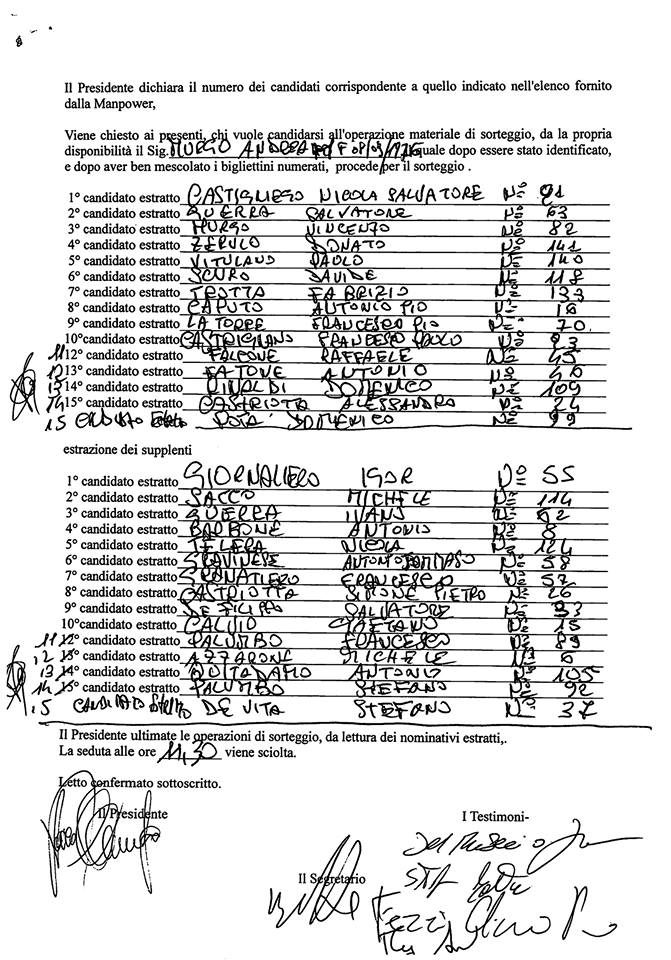 Il Presidente dichiara il numero dei candidati corrispondente a quello indicato nell'elenco fornito
dalla Manpower,
Viene chiesto ai presenti, chi vuole candidarsi all'operazione materiale di sorteggio, da la propria
disponibilità il Sig. MURGO ANDREA quale dopo essere stato identificato,
e dopo aver ben mescolato i bigliettini numerati, procede per il sorteggio .
1° candidato estratto CASTIGLIEGO NICOLA SALVATORE N° 21
2° candidato estratto GUERRA SALVATORE N° 63
3° candidato estratto MURGO VINCENZO N° 82
4° candidato estratto ZERULO DONATO N° 141
5° candidato estratto VITULANO PAOLO N° 140
6° candidato estratto SCURO DAVIDE N° 118
7° candidato estratto TROTTA FABRIZIO N° 133
8° candidato estratto CAPUTO ANTONIO PIO N° 18
9° candidato estratto LA TORRE FRANCESCO PIO N° 70
10° candidato estratto CASTRIGNANO FRANCESCO PAOLO N° 23
11 12° candidato estratto FALCONE RAFFAELE N° 45
12 13° candidato estratto FATONE ANTONIO N° 46
13 14° candidato estratto RINALDI DOMENICO N° 109
14 15° candidato estratto CASTRIOTTA ALESSANDRO N° 24
15 CANDIDATO Estratto ROTA DOMENICO N° 99
estrazione dei supplenti
1° candidato estratto GIORNALIERO IGOR N° 55
2° candidato estratto SACCO MICHELE N° 114
3° candidato estratto GUERRA IVANO N° 62
4° candidato estratto BARBONE ANTONIO N° 8
5° candidato estratto TELERA NICOLA N° 124
6° candidato estratto GRAVINESE ANTONIO TOMMASO N° 58
7° candidato estratto GRANATIERO FRANCESCO N° 57
8° candidato estratto CASTRIOTTA SIMONE PIETRO N° 26
9° candidato estratto DE FILIPPO SALVATORE N° 33
10° candidato estratto CALVIO GAETANO N° 15
11 12° candidato estratto PALUMBO FRANCESCO N° 89
12 13° candidato estratto AZZARONE MICHELE N° 6
13 14° candidato estratto QUITADAMO ANTONIO N° 105
14 15° candidato estratto PALUMBO STEFANO N° 92
15 CANDIDATO Estratto DE VITA STEFANO N° 37
Il Presidente ultimate le operazioni di sorteggio, da lettura dei nominativi estratti,.
La seduta alle ore 11,30 viene sciolta.
Letto confermato sottoscritto.
Il Presidente
I Testimoni-
Il Segretario